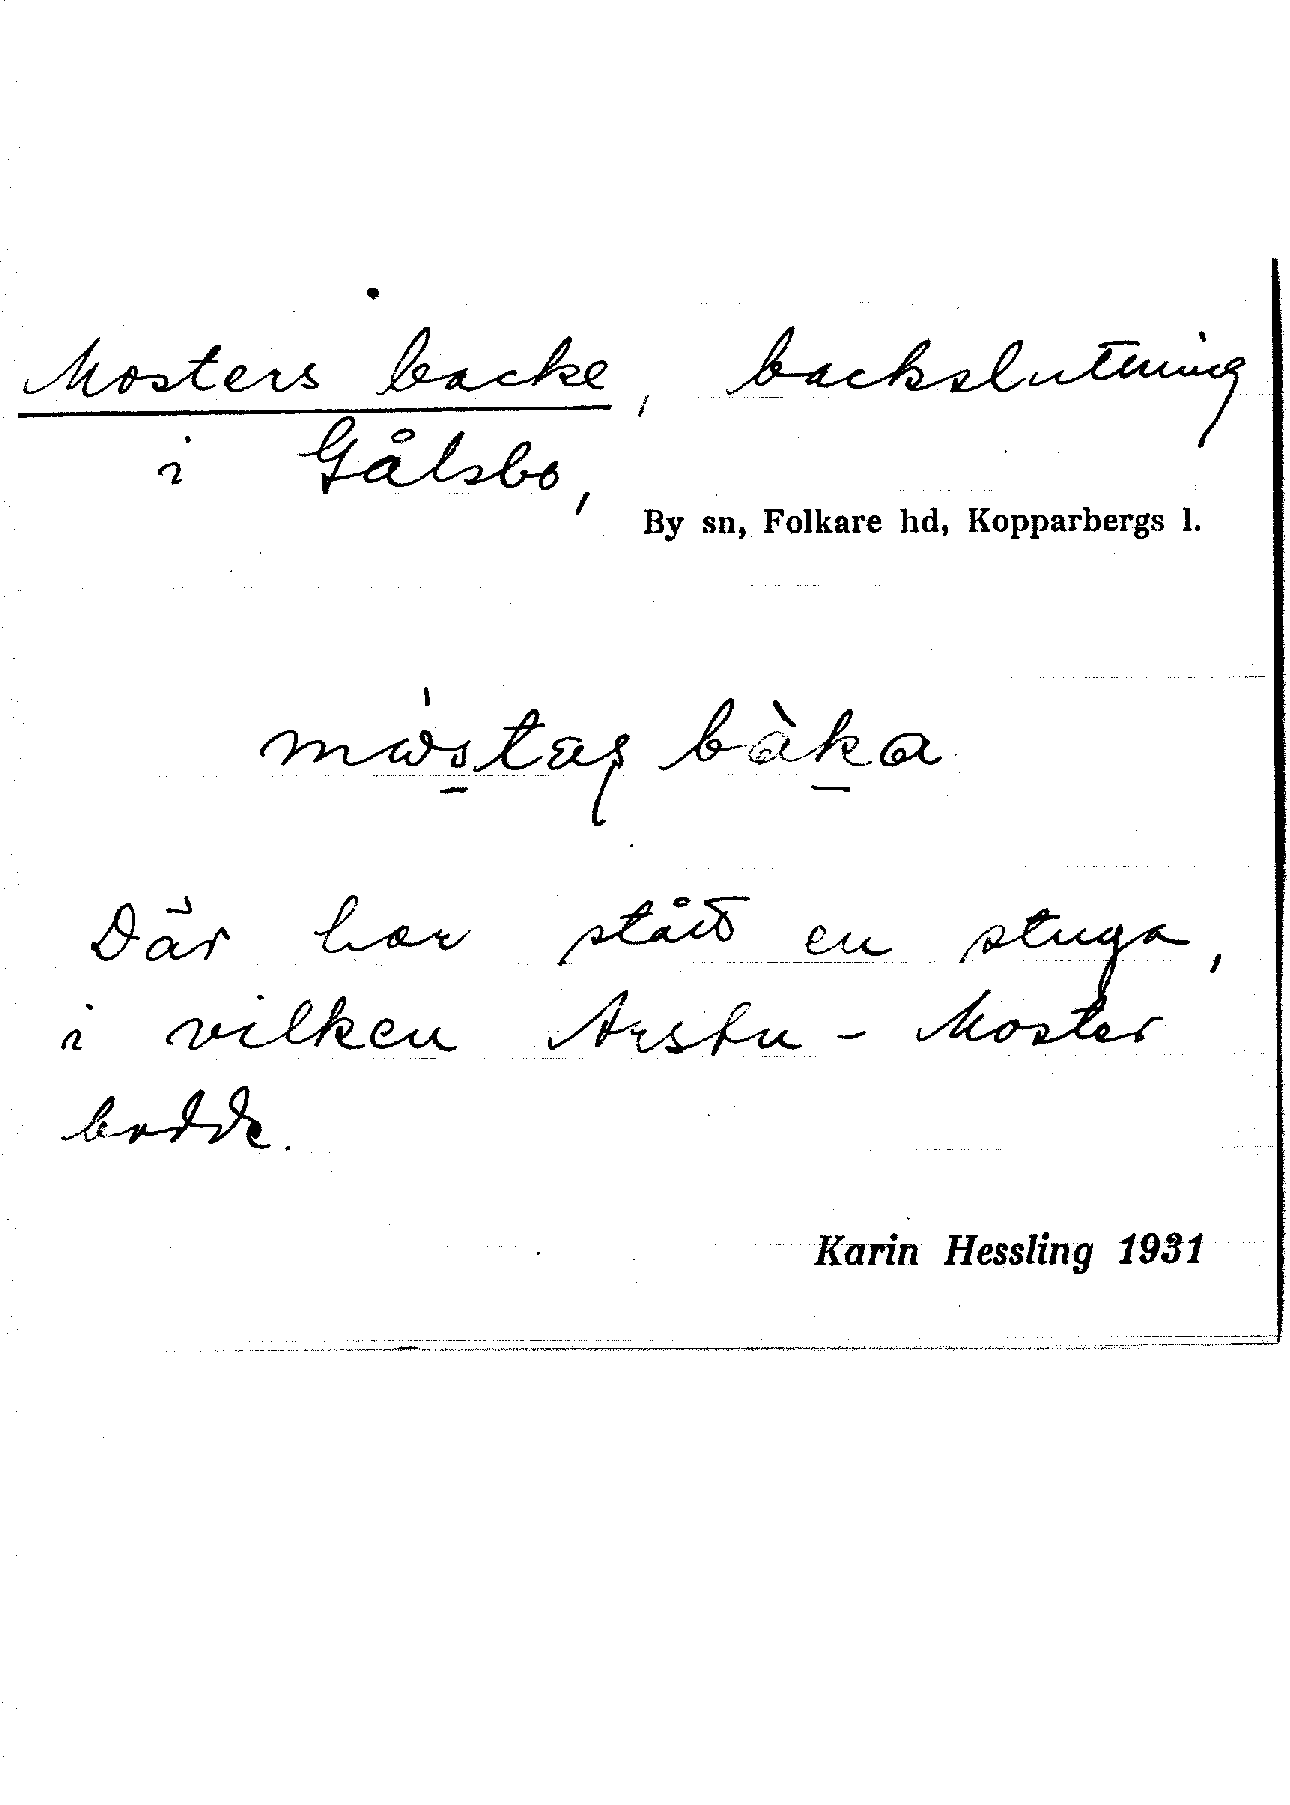 Mosters backe, backsluttning
i Gålsbo,
By sn, Folkare hd, Kopparbergs l.
bàka
Där har stått en stuga,
i vilken - Moster
bodde.
Karin Hessling 1931